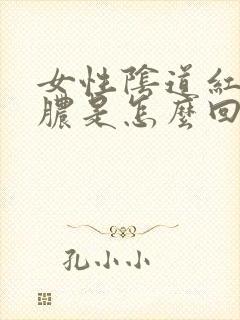 女性陰道紅
膿是怎麼回
孔小小